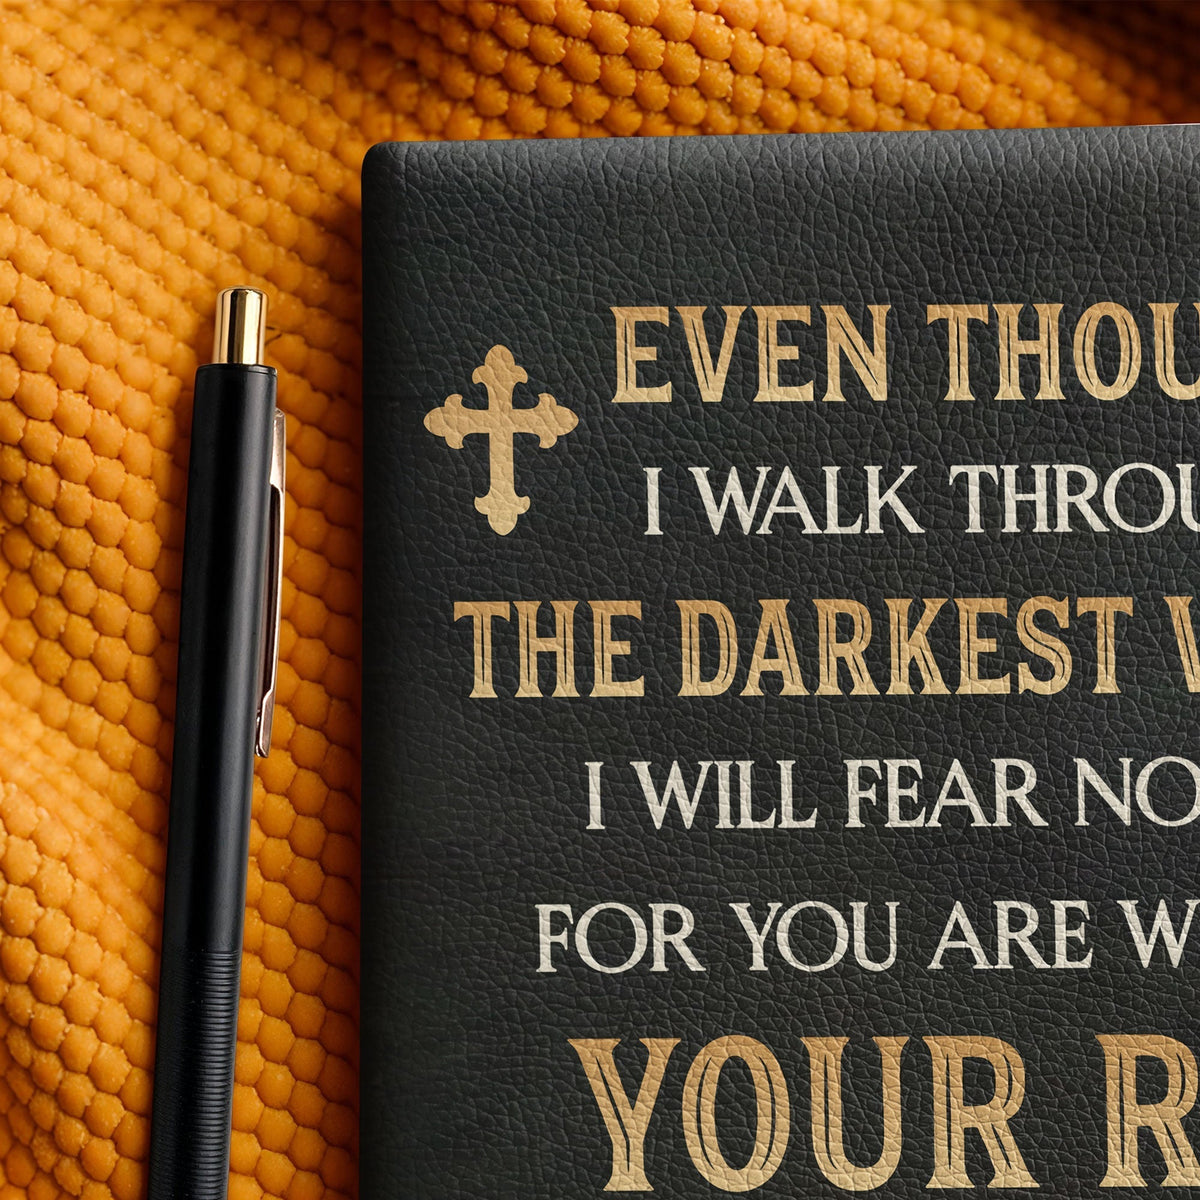 EVEN THOU
I WALK THROU
THE DARKEST V
I WILL FEAR NO
FOR YOU ARE W
YOUR R